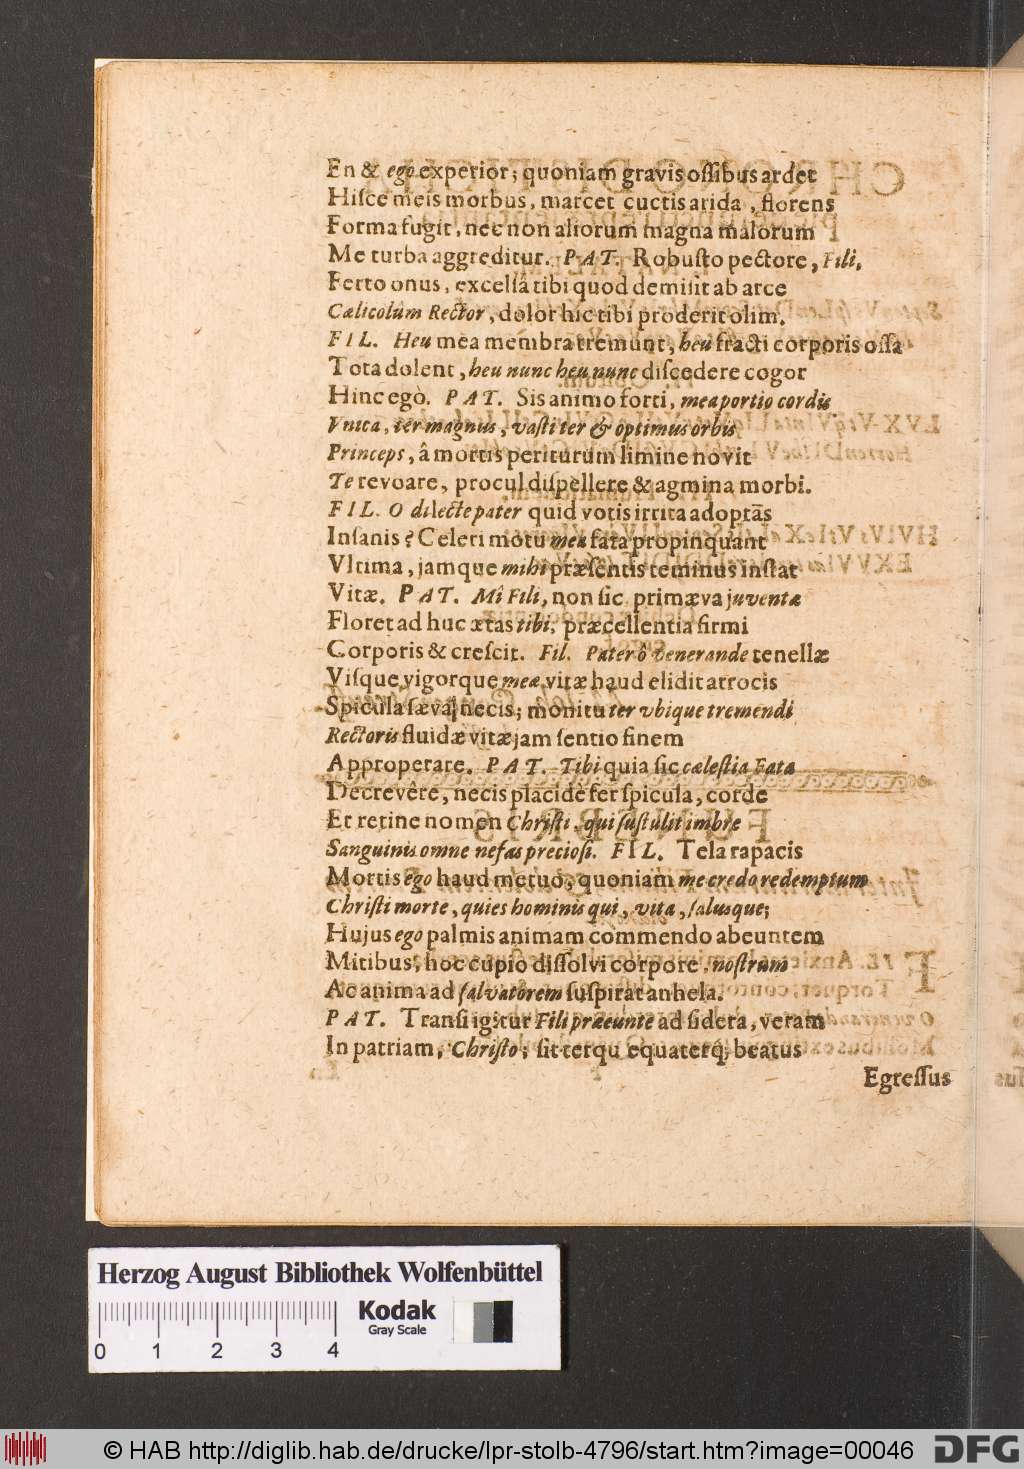 En & ego experior; quoniam gravis oſſibus ardet
Hiſce meis morbus, marcet cuctis arida, florens
Forma fugit, nec non aliorum magna malorum
Me turba aggreditur. PAT. Robuſto pectore, Fili,
Ferto onus, excelſâ tibi quod demiſit ab arce
Cælicolûm Rector, dolor hic tibi proderit olim.
FIL. Heu mea membra tremunt, heu fracti corporis oſſa
Tota dolent, heu nunc heu nunc diſcedere cogor
Hinc egò. PAT. Sis animo forti, mea portio cordis
Vnica, ter magnus, vaſti ter & optimus orbis
Princeps, â mortis periturum limine novit
Te revoare, procul diſpellere & agmina morbi.
FIL. O dilecte pater quid votis irrita adoptãs
Inſanis? Celeri motu mea fata propinquant
Vltima, jamque mihi præſentis teminus inſtat
Vitæ. PAT. Mî Fili, non ſic primæva juventæ
Floret ad huc ætas tibi, præcellentia firmi
Corporis & creſcit. Fil. Pater ô venerande tenellæ
Viſque vigorque meæ vitæ haud elidit atrocis
Spicula ſæva necis; monitu ter vbique tremendi
Rectoris fluidæ vitæ jam ſentio finem
Approperare. PAT. Tibi quia ſic cæleſtia Fata
Decrevêre, necis placidè fer ſpicula, corde
Et retine nomen Chriſti, qui ſuſtulit imbre
Sanguinis omne nefas precioſi. FIL. Tela rapacis
Mortis ego haud metuo, quoniam me credo redemptum
Chriſti morte, quies hominis qui, vita, ſalusque;
Hujus ego palmis animam commendo abeuntem
Mitibus, hoc cupio diſſolvi corpore, noſtrum
Ac anima ad ſalvatorem ſuſpirat anhela.
PAT. Tranſi igitur Fili præeunte ad ſidera, veram
In patriam, Chriſto; ſit terqu equaterq́; beatus
Egreſſus
Herzog August Bibliothek Wolfenbüttel
Kodak
Gray Scale
0 1 2 3 4
© HAB http://diglib.hab.de/drucke/lpr-stolb-4796/start.htm?image=00046 DFG